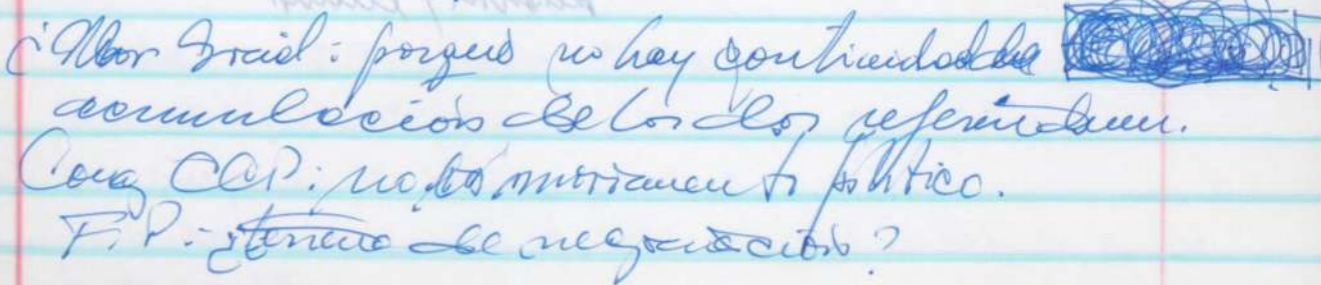 : porqué no hay continuidad de
acumulación de los dos referéndum.
CCP: no es movimiento político.
F.P.: ¿terreno de negociación?